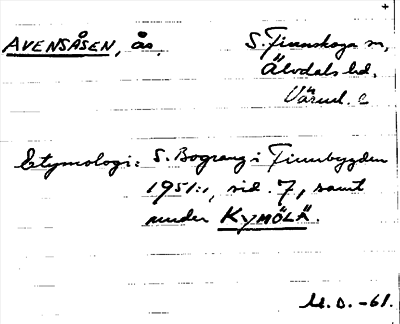 AVENSÅSEN, ås. S. Finnskoga sn,
Älvdals hd.
Värml. l
Etymologi: S. Bograng i Finnbygden
1951:1, sid. 7, samt
under KYMÖLÄ.
M.D. -61.